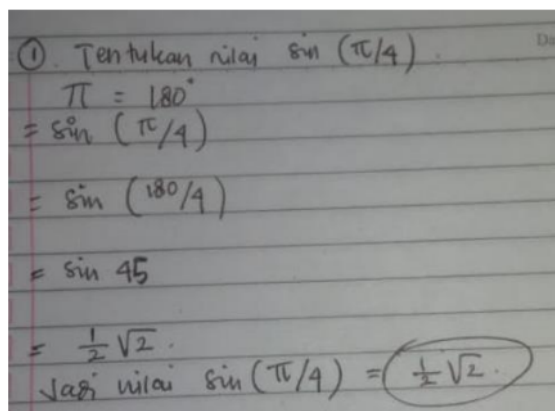 ① Tentukan nilai sin (π/4).
π = 180°
= sin (π/4)
= sin (180/4)
= sin 45
= 1/2 √2.
Jadi nilai sin (π/4) = 1/2 √2.